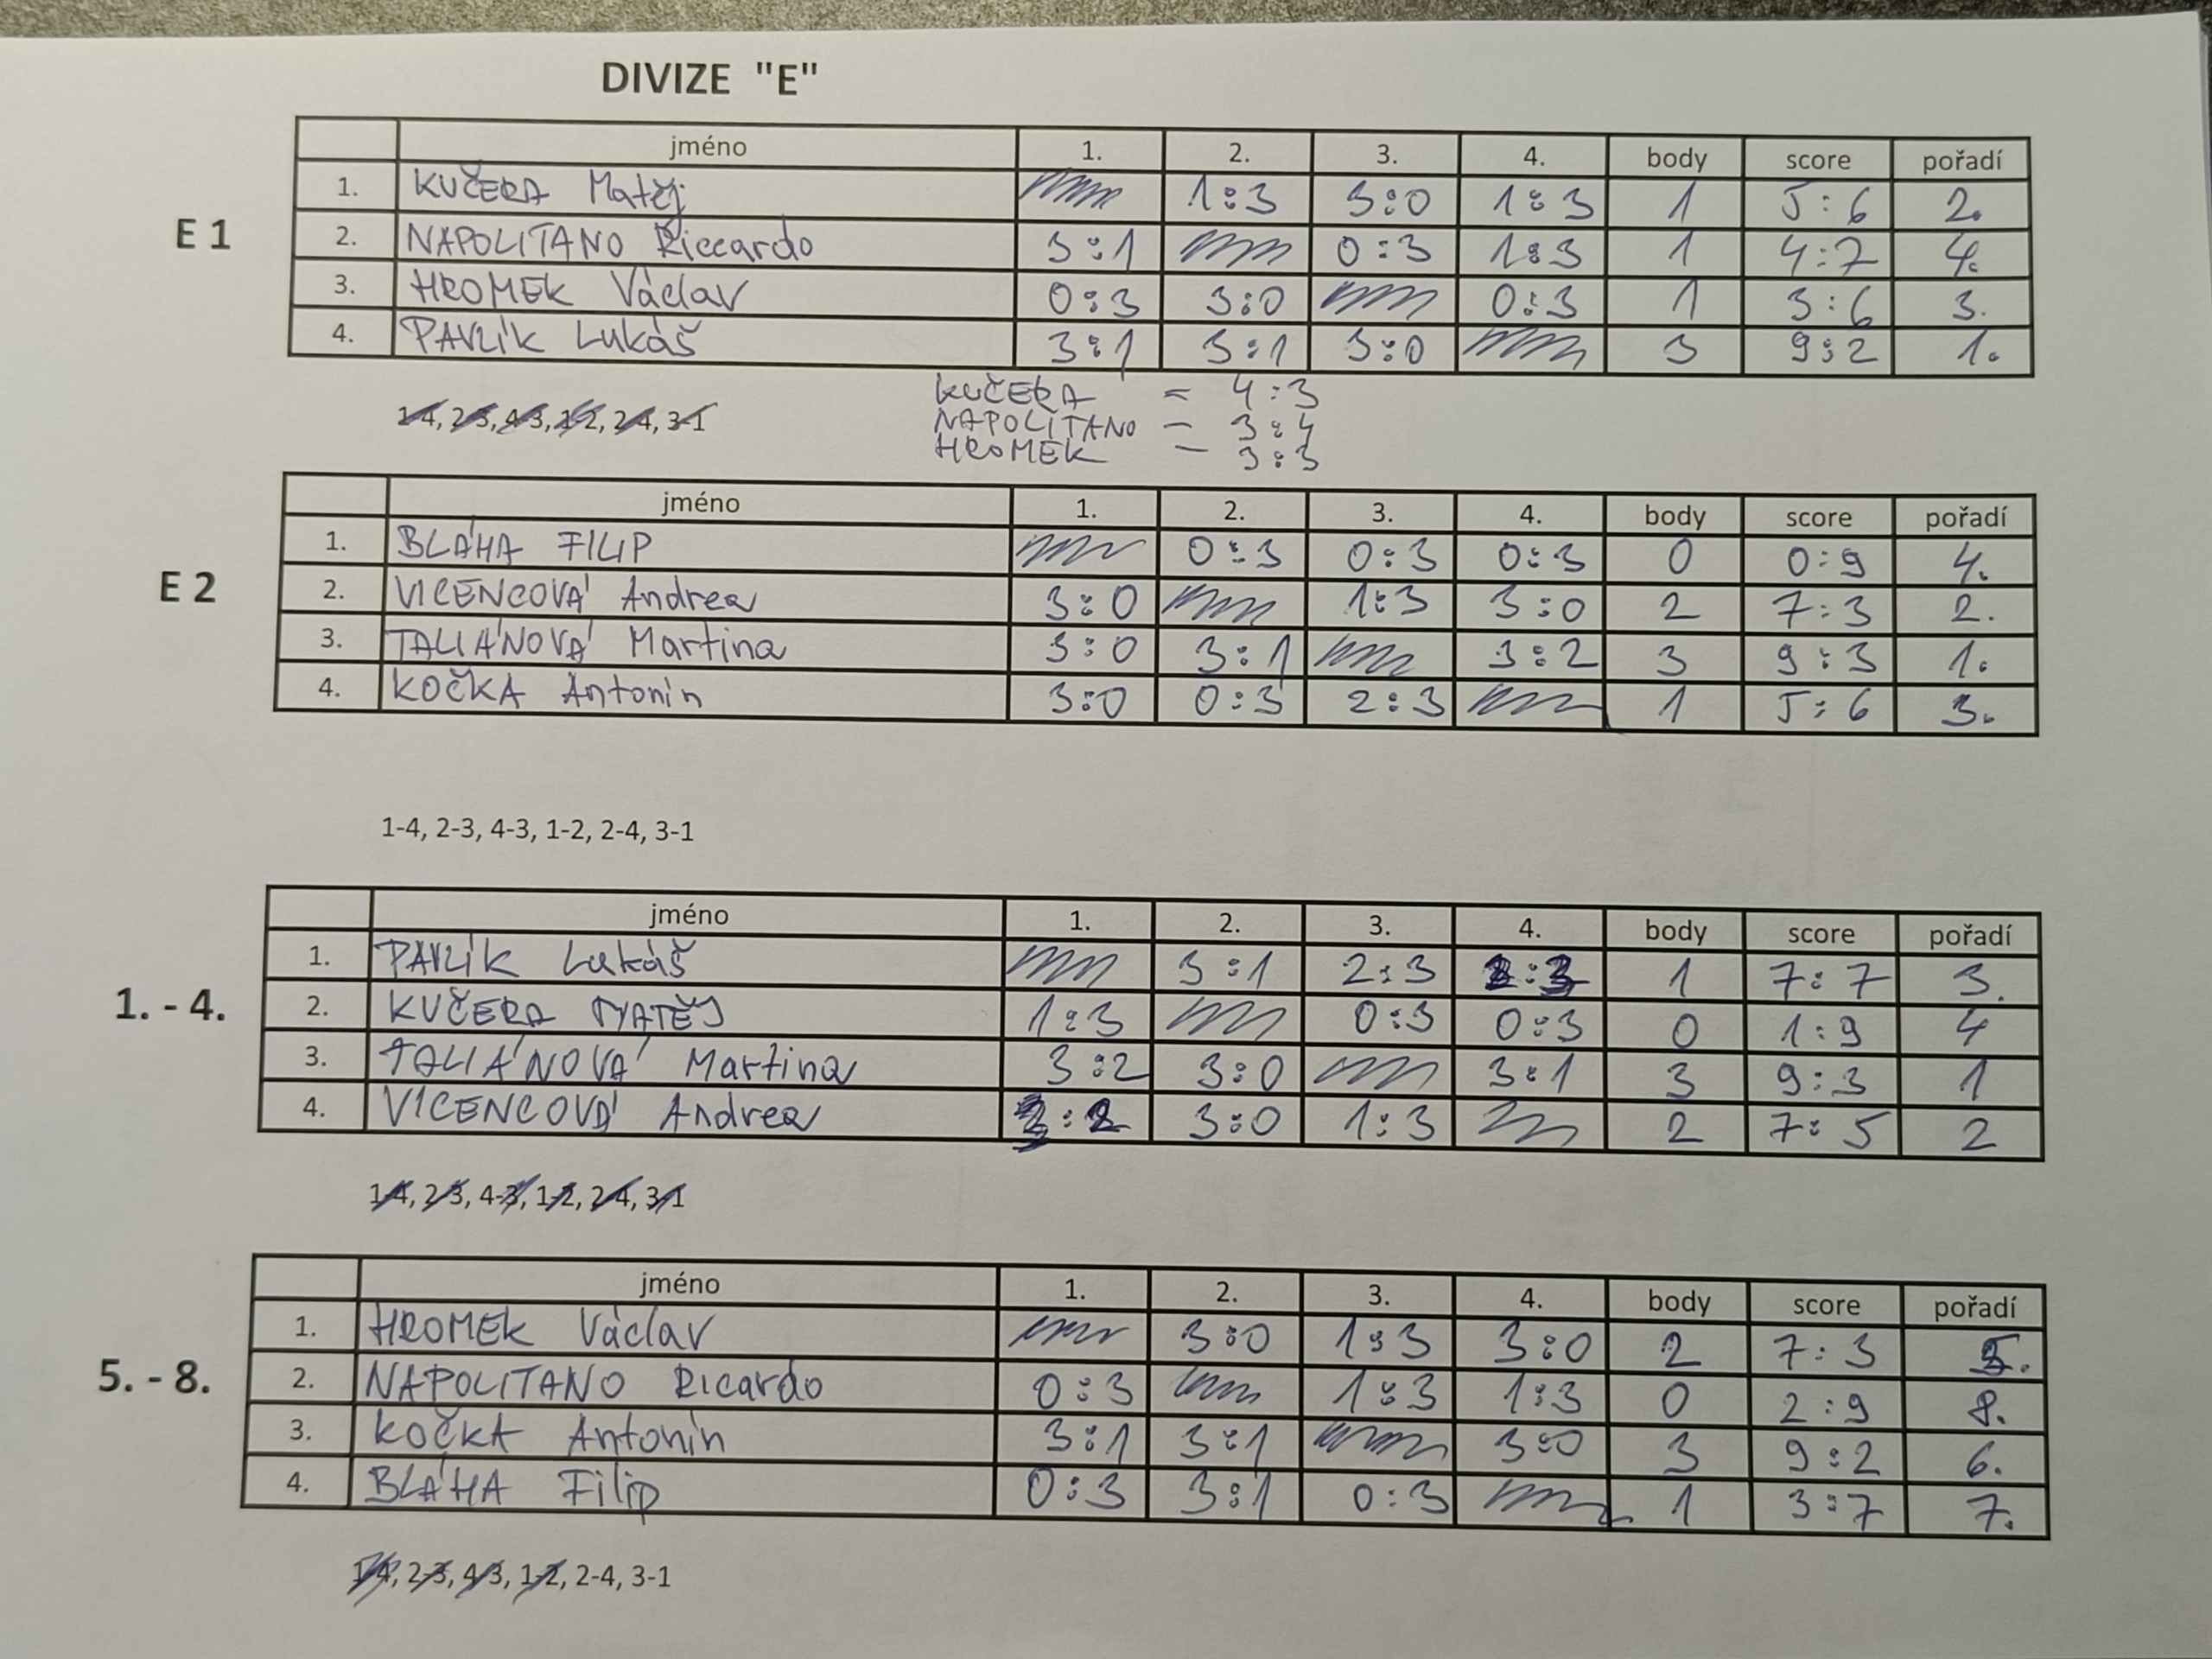 DIVIZE "E"
jméno 1. 2. 3. 4. body score pořadí
E 1
1. KUČERA Matěj 1:3 3:0 1:3 1 5:6 2.
2. NAPOLITANO Riccardo 3:1 0:3 1:3 1 4:7 4.
3. HROMEK Václav 0:3 3:0 0:3 1 3:6 3.
4. PAVLÍK Lukáš 3:1 3:1 3:0 3 9:2 1.
KUČERA = 4:3
1-4, 2-3, 4-3, 1-2, 2-4, 3-1
NAPOLITANO - 3:4
HROMEK - 3:3
jméno 1. 2. 3. 4. body score pořadí
E 2
1. BLÁHA FILIP 0:3 0:3 0:3 0 0:9 4.
2. VICENCOVÁ Andrea 3:0 1:3 3:0 2 7:3 2.
3. TALIÁNOVÁ Martina 3:0 3:1 3:2 3 9:3 1.
4. KOČKA Antonín 3:0 0:3 2:3 1 5:6 3.
1-4, 2-3, 4-3, 1-2, 2-4, 3-1
jméno 1. 2. 3. 4. body score pořadí
1. - 4.
1. PAVLÍK Lukáš 3:1 2:3 2:3 1 7:7 3.
2. KUČERA MATĚJ 1:3 0:3 0:3 0 1:9 4
3. TALIÁNOVÁ Martina 3:2 3:0 3:1 3 9:3 1
4. VICENCOVÁ Andrea 3:2 3:0 1:3 2 7:5 2
1-4, 2-3, 4-3, 1-2, 2-4, 3-1
jméno 1. 2. 3. 4. body score pořadí
5. - 8.
1. HROMEK Václav 3:0 1:3 3:0 2 7:3 5.
2. NAPOLITANO Ricardo 0:3 1:3 1:3 0 2:9 8.
3. KOČKA Antonín 3:1 3:1 3:0 3 9:2 6.
4. BLÁHA Filip 0:3 3:1 0:3 1 3:7 7.
1-4, 2-3, 4-3, 1-2, 2-4, 3-1